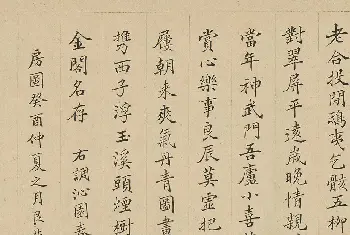 老合投閒鴟夷乞骸五柳
對翠屏平遠歲晚情親
當年神武門吾廬小喜
賞心樂事良辰莫虛把
屐朝來爽氣丹青圖畫
携西子浮玉溪頭煙樹
金閣名存 右調沁園春
房圖癸酉仲夏之月